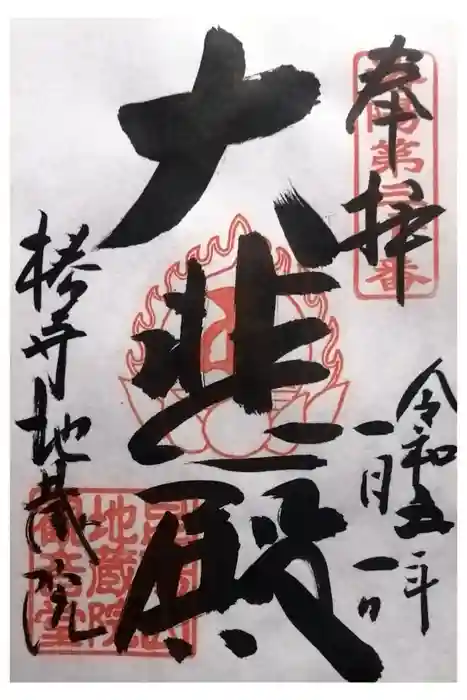 奉拝
洛陽第三十番
令和五年
一月一日
大悲殿
椿寺地蔵院
地蔵院
観音堂